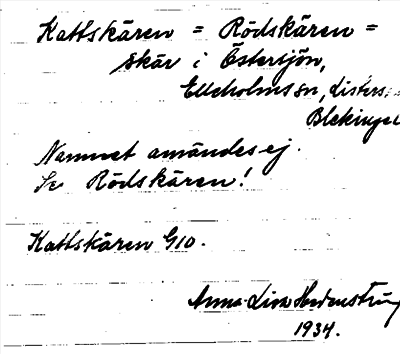 Kattskären = Rödskären =
skär i Östersjön,
Elleholms sn, Listers
Blekinge
Namnet användes ej.
Se Rödskären!
Kattskären G10.
Anna-Lisa
1934.